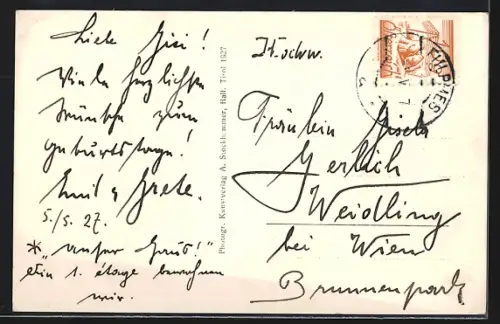 Liebe Gisi!
Viele herzlichste
Wünsche zum
Geburtstage!
Emil & Grete.
5./5. 27.
* "unser Haus!"
die 1. étage bewohnen
wir.
Photogr. Kunstverlag A. Stockhammer, Hall, Tirol 1927
Hochw.
Fräulein Gisela
Gerlich
Weidling
bei Wien
Brunnenpark
FULPMES